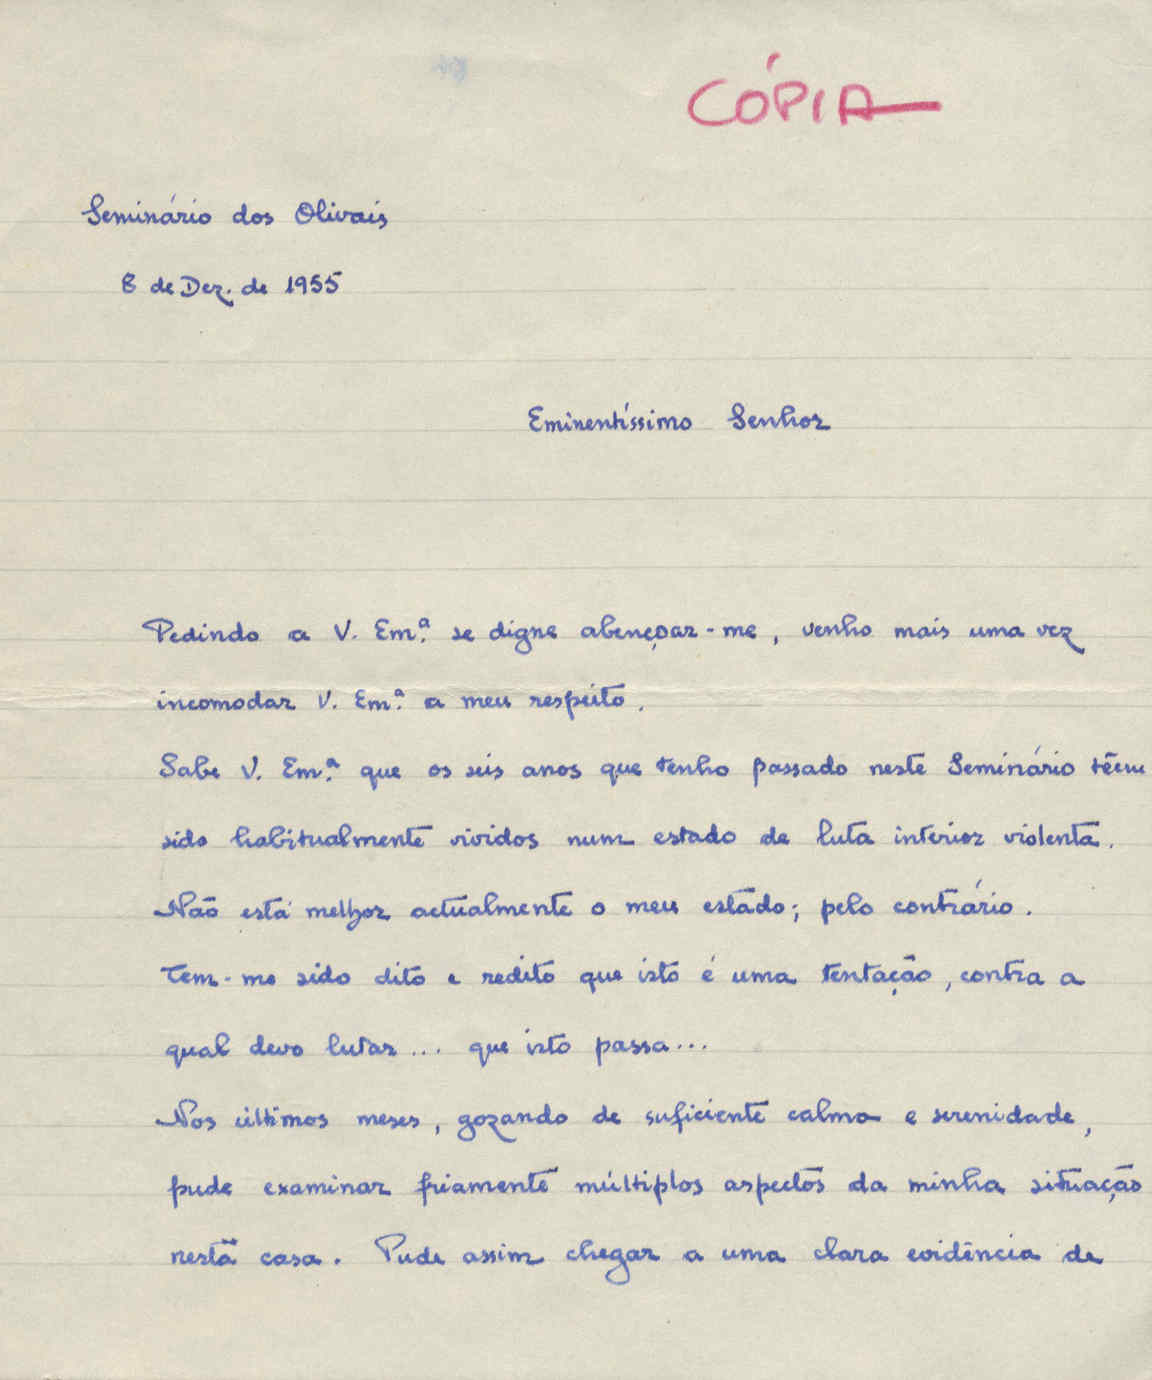 CÓPIA
Seminário dos Olivais
8 de Dez. de 1955
Eminentíssimo Senhor
Pedindo a V. Em.ª se digne abençoar-me, venho mais uma vez
incomodar V. Em.ª a meu respeito.
Sabe V. Em.ª que os seis anos que tenho passado neste Seminário têem
sido habitualmente vividos num estado de luta interior violenta.
Não está melhor actualmente o meu estado; pelo contrário.
Tem-me sido dito e redito que isto é uma tentação, contra a
qual devo lutar... que isto passa...
Nos últimos meses, gozando de suficiente calma e serenidade,
pude examinar friamente múltiplos aspectos da minha situação
nesta casa. Pude assim chegar a uma clara evidência de